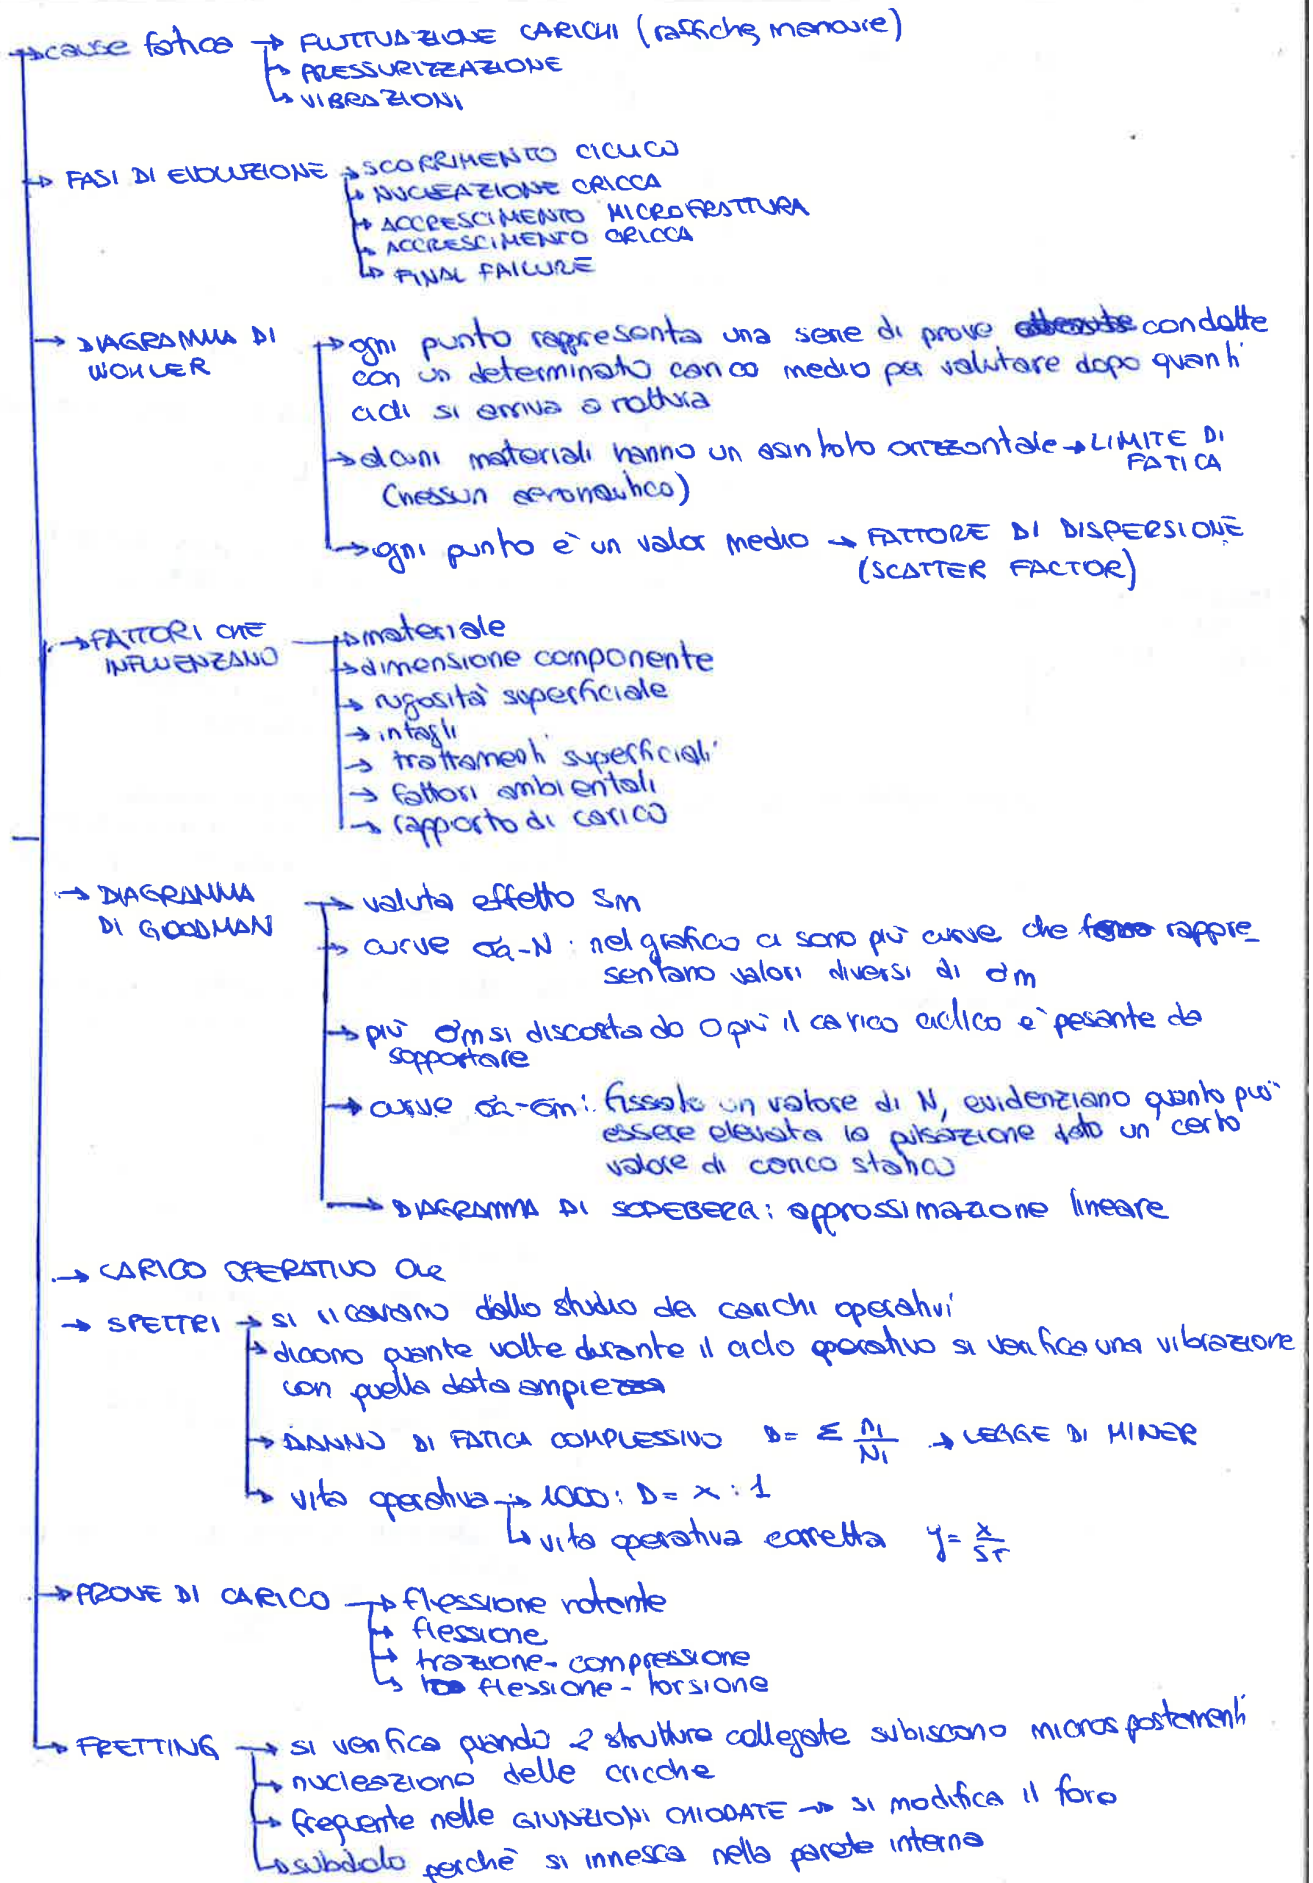 → cause fatica → FLUTTUAZIONE CARICHI (raffiche, manovre)
→ PRESSURIZZAZIONE
→ VIBRAZIONI
→ FASI DI EVOLUZIONE → SCORRIMENTO CICLICO
→ NUCLEAZIONE CRICCA
→ ACCRESCIMENTO MICROFRATTURA
→ ACCRESCIMENTO CRICCA
→ FINAL FAILURE
→ DIAGRAMMA DI WOHLER → ogni punto rappresenta una serie di prove condotte
con un determinato carico medio per valutare dopo quanti
cicli si arriva a rottura
→ alcuni materiali hanno un asintoto orizzontale → LIMITE DI FATICA
(nessun aeronautico)
→ ogni punto è un valor medio → FATTORE DI DISPERSIONE
(SCATTER FACTOR)
→ FATTORI CHE INFLUENZANO → materiale
→ dimensione componente
→ rugosità superficiale
→ intagli
→ trattamenti superficiali
→ fattori ambientali
→ rapporto di carico
→ DIAGRAMMA DI GOODMAN → valuta effetto Sm
→ curve σa-N: nel grafico ci sono più curve che rappre_
sentano valori diversi di σm
→ più σm si discosta da 0 più il carico ciclico è pesante da
sopportare
→ curve σa-σm: fissato un valore di N, evidenziano quanto può
essere elevata la pulsazione dato un certo
valore di carico statico
→ DIAGRAMMA DI SODEBERG: approssimazione lineare
→ CARICO OPERATIVO
→ SPETTRI → si ricavano dallo studio dei carichi operativi
→ dicono quante volte durante il ciclo operativo si verifica una vibrazione
con quella data ampiezza
→ DANNO DI FATICA COMPLESSIVO D= Σ ni/Ni → LEGGE DI MINER
→ vita operativa → 1000 : D = x : 1
→ vita operativa corretta y = x/SF
→ PROVE DI CARICO → flessione rotante
→ flessione
→ trazione-compressione
→ flessione-torsione
→ FRETTING → si verifica quando 2 strutture collegate subiscono microspostamenti
→ nucleaziono delle cricche
→ frequente nelle GIUNZIONI CHIODATE → si modifica il foro
→ subdolo perchè si innesca nella parete interna